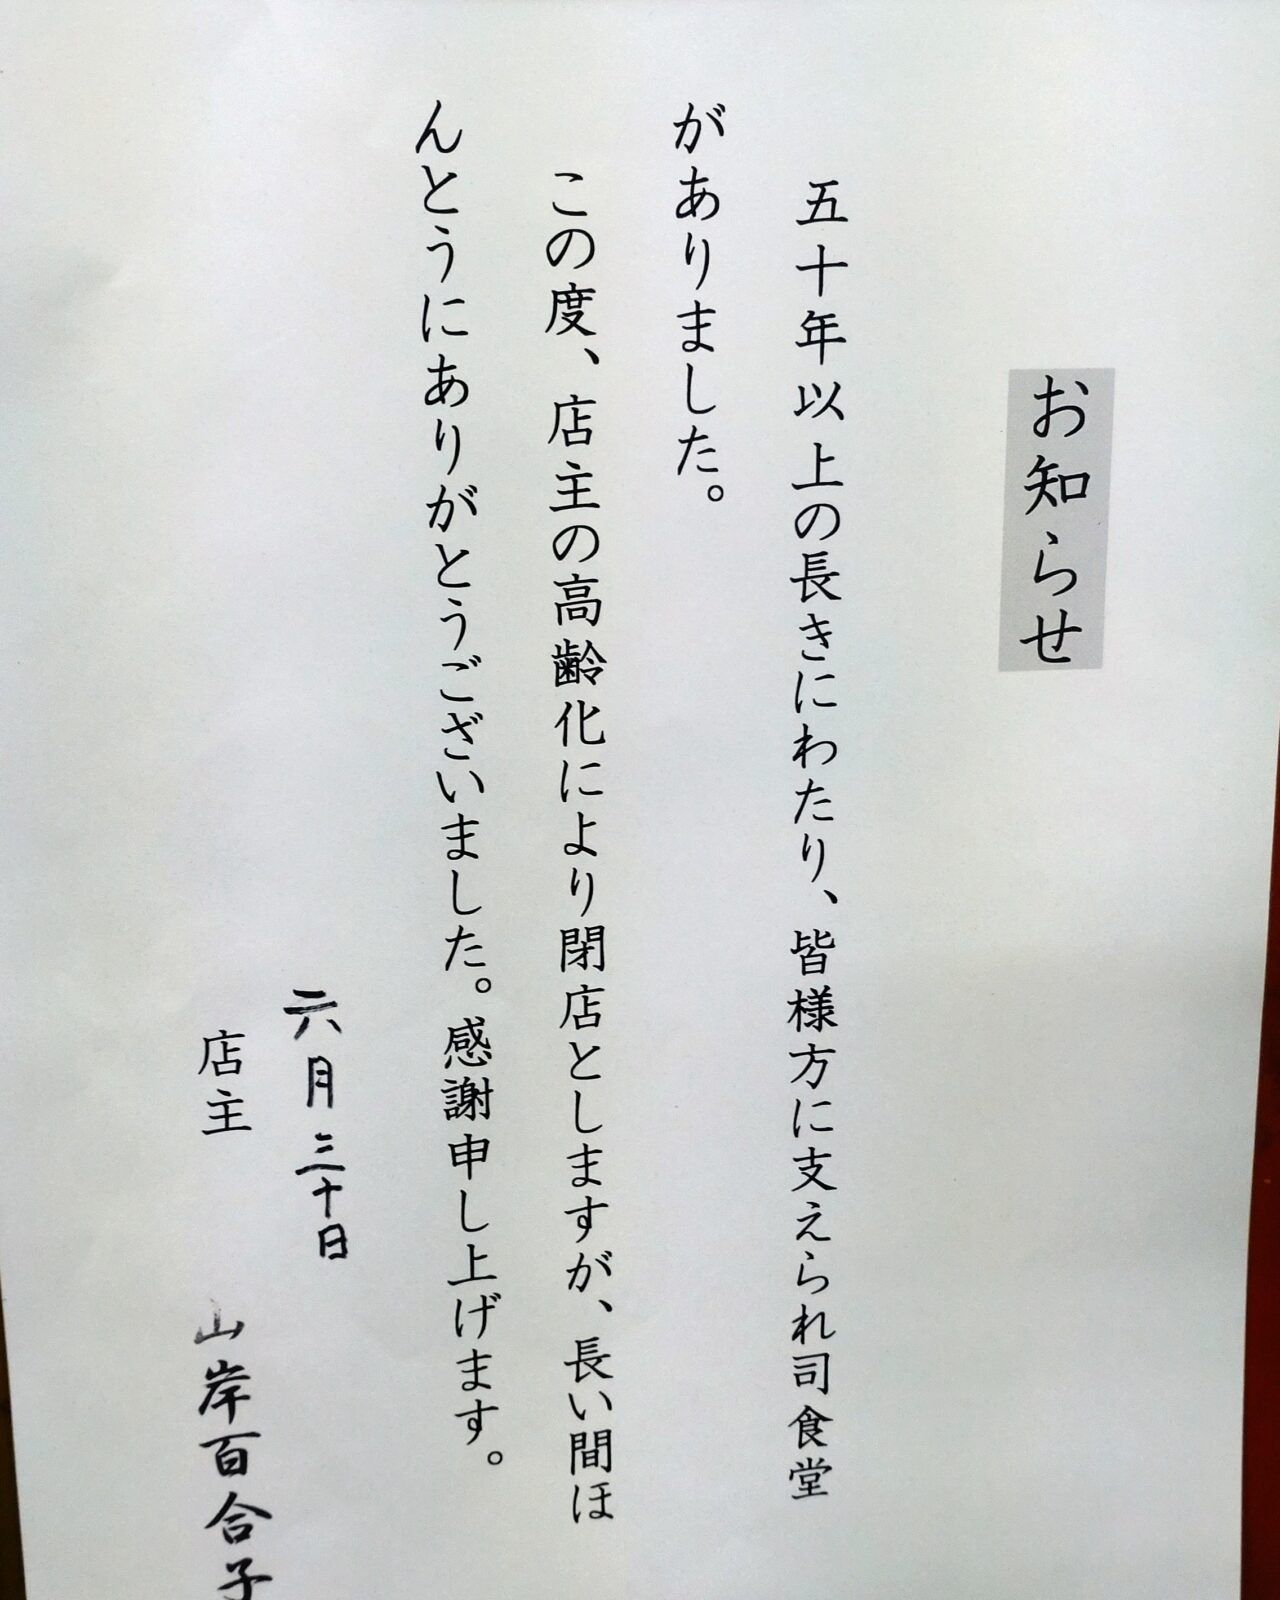 お知らせ
五十年以上の長きにわたり、皆様方に支えられ司食堂
がありました。
この度、店主の高齢化により閉店としますが、長い間ほ
んとうにありがとうございました。感謝申し上げます。
六月三十日
店主 山岸百合子